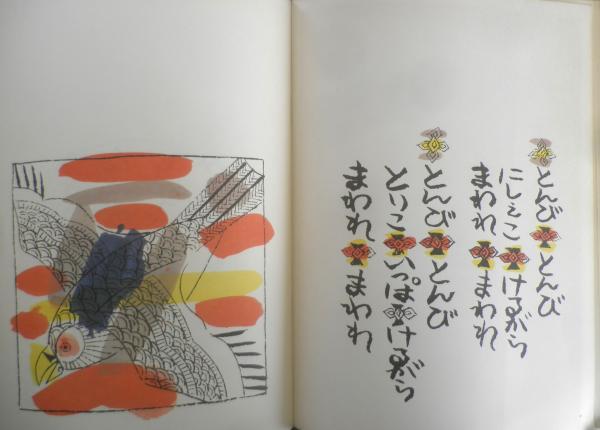 とんび とんび
にしぇこ けるがら
まわれ まわれ
とんび とんび
とりこ いっぱ けるがら
まわれ まわれ